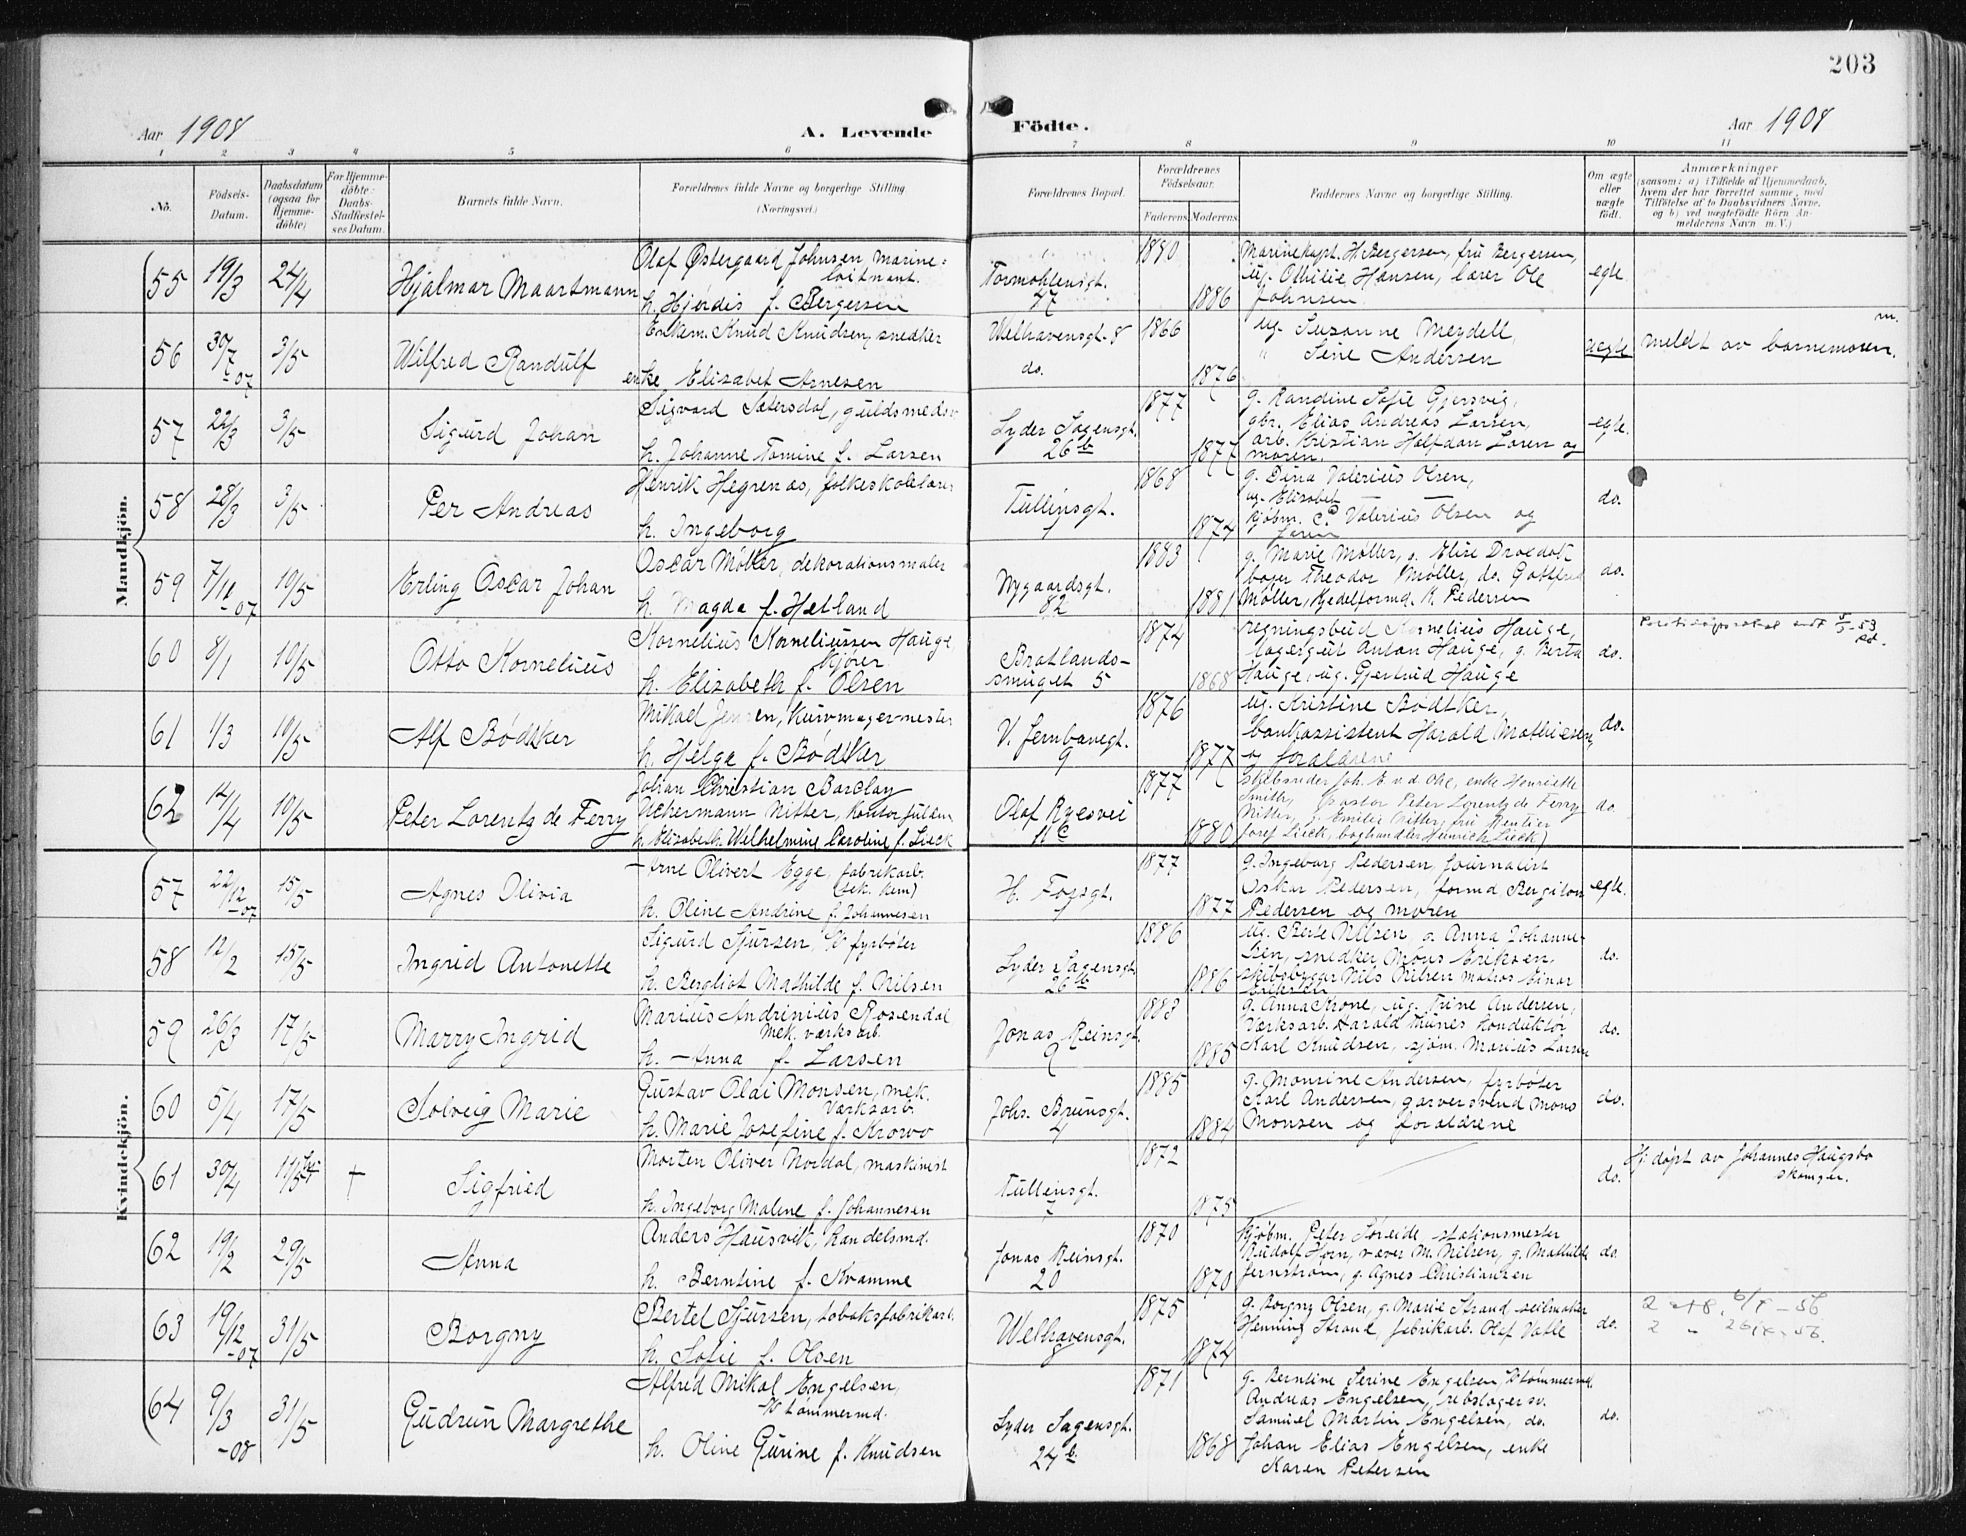 203
Aar 1908
A. Levende
Födte.
Aar 1908
1 2 3 4 5 6 7 8 9 10 11
No.
Födsels-
Datum.
Daabsdatum
(ogsaa for
Hjemme-
döbte)
For Hjemme-
døbte:
Daabs-
Stadfæstel-
ses Datum.
Barnets fulde Navn.
Forældrenes fulde Navne og borgerlige Stilling
(Næringsvei.)
Forældrenes Bopæl.
Forældrenes
Födselsaar.
Faderens
Moderens
Faddernes Navne og borgerlige Stilling.
Om ægte
eller
uægte
födt.
Anmærkninger
(saasom: a) i Tilfælde af Hjemmedaab,
hvem der har forrettet samme, med
Tilføielse af to Daabsvidners Navne,
og b) ved uægtefödte Börn An-
melderens Navn m. V.)
Mandkjön.
55 19/3 24/4 Hjalmar Maartmann
Olaf Østergaard Johnsen, marine-
løitnant.
h. Hjørdis f. Bergersen
Tormohlensgt.
47
1880
1886
Marinekapt. H. Bergersen, fru Bergersen,
ug. Othilie Hansen, lærer Ole
Johnsen
egte.
56 30/7 -07 3/5 Wilfred Randulf
Enkem. Knud Knudsen, snedker
enke Elizabet Arnesen
Welhavensgt. 8
do.
1866
1876
ug. Suzanne Meydell,
" Sine Andersen
uegte
meldt av barnemoren.
57 22/3 3/5 Sigurd Johan
Sigvard Sætersdal, guldsmedsv.
h. Johanne Tomine f. Larsen
Lyder Sagensgt.
26 b
1877
1877
g. Randine Sofie Gjersvig,
gbr. Elias Andreas Larsen,
arb. Kristian Halfdan Loren og
moren.
egte.
58 28/3 3/5 Per Andreas
Henrik Hegrenæs, folkeskolelærer
h. Ingeborg
Tullinsgt.
1
1868
1874
g. Dina Valerius Olsen,
ug. Elisabet
kjøbm. C. Valerius Olsen og
faren
do.
59 7/11 -07 10/5 Erling Oscar Johan
Oscar Møller, dekorationsmaler
h. Magda f. Hetland
Nygaardsgt.
82
1883
1881
g. Marie Møller, g. Elise
Theodor Møller, do. Gottfred
Møller, Kjedelformd. K. Pedersen
do.
60 8/1 10/5 Otto Kornelius
Kornelius Korneliussen Hauge,
kjører
h. Elizabeth f. Olsen
Bratlands-
smuget 5
1874
1868
regningsbud Kornelius Hauge,
lagergut Anton Hauge, g. Berta
Hauge, ug. Gjertrud Hauge
do.
61 1/3 10/5 Alf Bødtker
Mikael Jensen, kurvmagermester
h. Helga f. Bødtker
V. Jernbanegt.
9
1876
1877
ug. Kristine Bødtker,
bankassistent Harald Mathiesen,
og forældrene
do.
62 12/4 10/5 Peter Lorentz de Ferry
Johan Christian Barclay
Uckermann Nitter, kontorfuldm.
h. Elisabeth Wilhelmine Caroline f. Lieck
Olaf Ryesvei
11 c
1877
1880
Skibsreder Joh. E. v.d. Ohe, enke Henriette
Smith, pastor Peter Lorentz de Ferry
Nitter, g. Emilie Nitter, fru Mentier
Josef Lieck, boghandler Heinrich Lieck)
do
Kvindekjön.
57 22/12 -07 15/5 Agnes Olivia
Arne Olivert Egge, fabrikarb.
h. Oline Andrine f. Johannesen
H. Fossgt.
1
1877
1877
g. Ingeborg Pedersen, journalist
Oskar Pedersen, formd. Bergiton
Pedersen og moren
egte.
58 12/2 15/5 Ingrid Antonette
Sigurd Sjursen, fyrbøter
h. Bergliot Mathilde f. Nilsen
Lyder Sagensgt.
26 b
1886
1886
ug. Berte Nilsen, g. Anna Johanne-
sen, snedker Mons Eriksen,
skibsbygger Nils Nilsen matros Einar
Eriksen
do.
59 26/3 17/5 Marry Ingrid
Marius Andrinius Rosendal
Mek. værksarb.
h. Anna f. Larsen
Jonas Reinsgt.
9
1883
1885
g. Anna Krone, ug. Trine Andersen,
Værksarb. Harald Thunes konduktør
Karl Knudsen, sjøm. Marius Larsen
do.
60 5/4 17/5 Solveig Marie
Gustav Olai Monsen, mek.
Værksarb.
h. Marie Josefine f. Krowo
Johs. Brunsgt.
4
1885
1884
g. Monsine Andersen, fyrbøter
Karl Andersen, garversvend Mons
Monsen og forældrene
do.
61 30/4 11/5 † Sigfried
Morten Oliver Nordal, maskinist
h. Ingeborg Malene f. Johannesen
Tullinsgt.
7
1872
1875
do.
Hj. døpt av Johannes Haugsbø
skomger.
62 19/2 29/5 Anna
Anders Hausvik, handelsmd.
h. Berntine f. Kvamme
Jonas Reinsgt.
20
1870
1870
Kjøbm. Peter Søreide stationsmester
Rudolf Horn, væver M. Nilsen, g. Mathilde
Jernstrøm, g. Agnes Christiansen
do.
63 19/12 -07 31/5 Borgny
Bertel Sjursen, tobaksfabrikarb.
h. Sofie f. Olsen
Welhavensgt.
8
1875
1874
g. Borgny Olsen, g. Marie Strand seilmaker
Henning Strand, fabrikarb. Olaf Valle
do.
64 9/3 -08 31/5 Gudrun Margrethe
Alfred Mikal Engelsen,
tømmermd.
h. Oline Gurine f. Knudsen
Lyder Sagensgt.
24 b
1871
1868
g. Berntine Serine Engelsen, tømmermd.
Andreas Engelsen, rebslagersv.
Samuel Martin Engelsen, do.
Johan Elias Engelsen, enke
Karen Petersen
do.